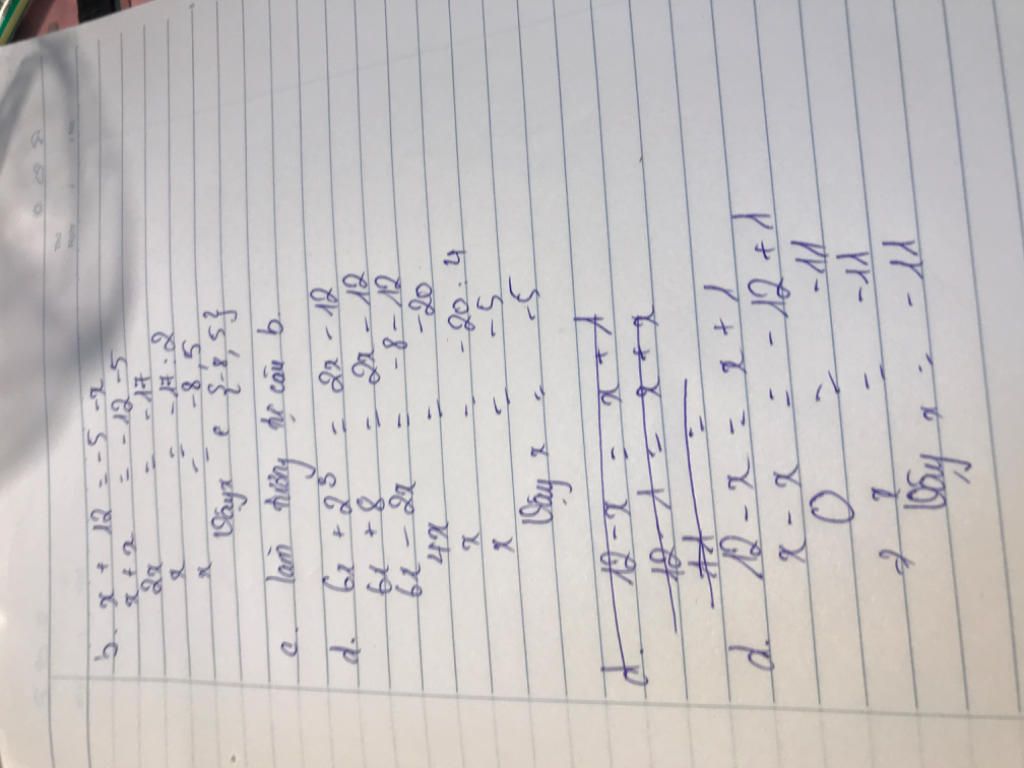 b. x + 12 = -5 - x
x + x = -12 - 5
2x = -17
x = -17 : 2
x = -8,5
Vậy x e {-8,5}
c. làm riêng câu b
d. 6x + 2³ = 2x - 12
6x + 8 = 2x - 12
6x - 2x = -8 - 12
4x = -20
x = -20 : 4
x = -5
Vậy x = -5
d. 12 - x = x + 1
12 - 1 = x + x
11 =
d. 12 - x = x + 1
x - x = -12 + 1
0 = -11
x = -11
Vậy x = -11